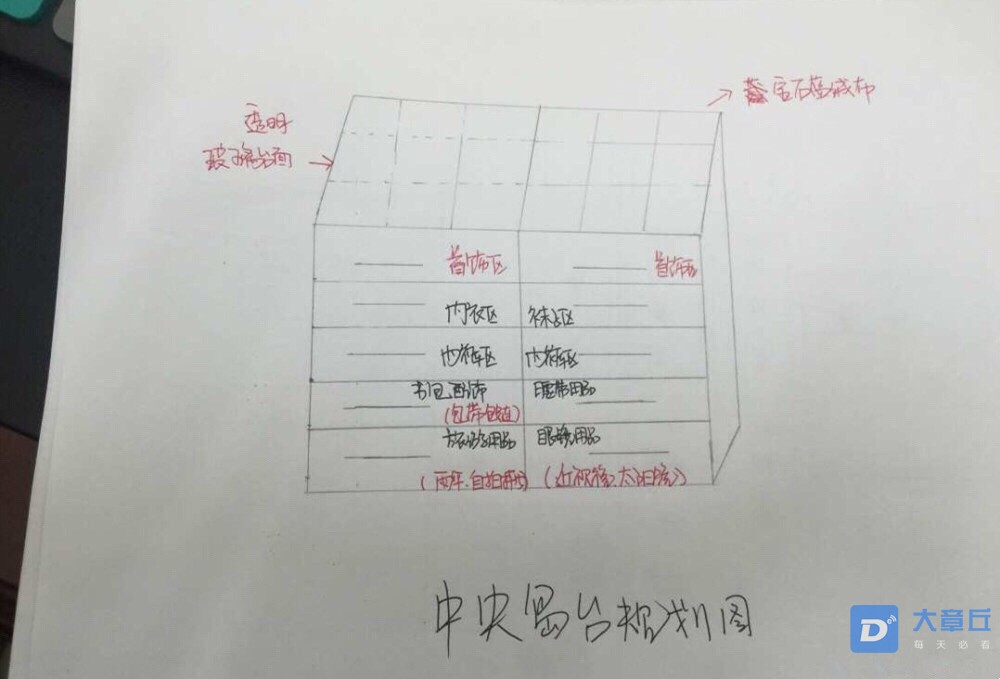 透明
玻璃台面
宝石蓝绒布
首饰区
首饰区
内衣区
袜子区
内裤区
内裤区
书包配饰
腰带用品
(包带包链)
旅游用品
眼镜用品
(雨伞.自拍神器)
(近视镜、太阳镜)
中央岛台规划图
大章丘
每天必看